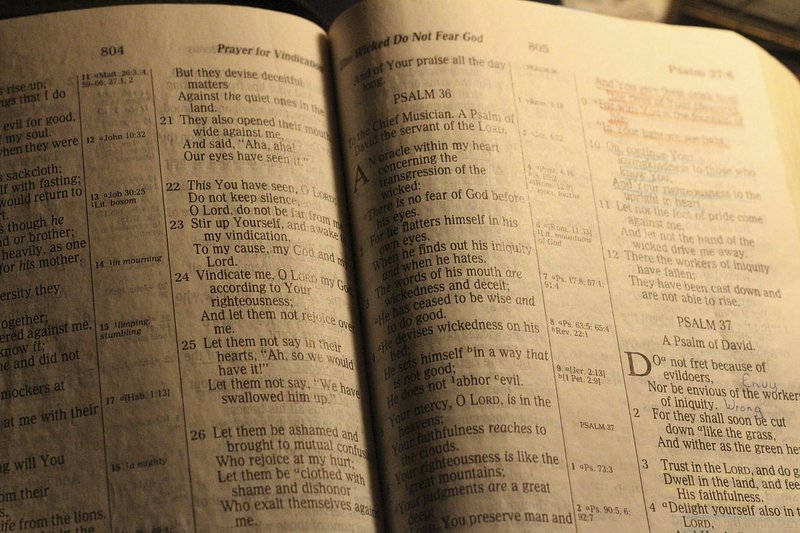 804
Prayer for Vindication
rise up;
ngs that I do
evil for good,
f my soul.
when they were
sackcloth;
lf with fasting;
would return to
s though he
nd or brother;
heavily, as one
for his mother.
ersity they
together;
ered against me,
know it;
ne and did not
mockers at
at me with their
ng will You
rom their
life from the lions.
11 aMatt. 26:3, 4
59–66; 27:1, 2
12 aJohn 10:32
13 aJob 30:25
1Lit. bosom
14 1in mourning
15 1limping,
stumbling
17 a[Hab. 1:13]
18 1a mighty
But they devise deceitful
matters
Against the quiet ones in the
land.
21 They also opened their mouth
wide against me,
And said, "Aha, aha!
Our eyes have seen it."
22 This You have seen, O LORD;
Do not keep silence.
O Lord, do not be far from me.
23 Stir up Yourself, and awake to
my vindication,
To my cause, my God and my
Lord.
24 Vindicate me, O LORD my God,
according to Your
righteousness;
And let them not rejoice over
me.
25 Let them not say in their
hearts, "Ah, so we would
have it!"
Let them not say, "We have
swallowed him up."
26 Let them be ashamed and
brought to mutual confusion
Who rejoice at my hurt;
Let them be aclothed with
shame and dishonor
Who exalt themselves against
me.
The Wicked Do Not Fear God
805
Psalm 37:4
And of Your praise all the day
long.
PSALM 36
To the Chief Musician. A Psalm of
David the servant of the LORD.
AN oracle within my heart
concerning the
transgression of the
wicked:
There is no fear of God before
his eyes.
2 For he flatters himself in his
own eyes,
When he finds out his iniquity
and when he hates.
3 The words of his mouth are
wickedness and deceit;
He has ceased to be wise and
to do good.
4 He devises wickedness on his
bed;
He sets himself bin a way that
is not good;
He does not 1abhor cevil.
Your mercy, O LORD, is in the
heavens;
Your faithfulness reaches to
the clouds.
Your righteousness is like the
great mountains;
Your judgments are a great
deep;
You preserve man and
6 a[Rom. 11:33]
1Lit. mountains
of God
7 aPs. 17:8; 57:1;
91:4
8 aPs. 63:5; 65:4
bRev. 22:1
9 a[Jer. 2:13]
b[1 Pet. 2:9]
PSALM 37
1 aPs. 73:3
2 aPs. 90:5, 6;
92:7
10 Oh, continue Your
lovingkindness to those who
know You,
And Your righteousness to the
upright in heart.
11 Let not the foot of pride come
against me,
And let not the hand of the
wicked drive me away.
12 There the workers of iniquity
have fallen;
They have been cast down and
are not able to rise.
PSALM 37
A Psalm of David.
DOa not fret because of
evildoers,
Envy
Nor be envious of the workers
of iniquity.
Wrong
2 For they shall soon be cut
down alike the grass,
And wither as the green he
3 Trust in the LORD, and do g
Dwell in the land, and fee
His faithfulness.
4 aDelight yourself also in t
LORD,